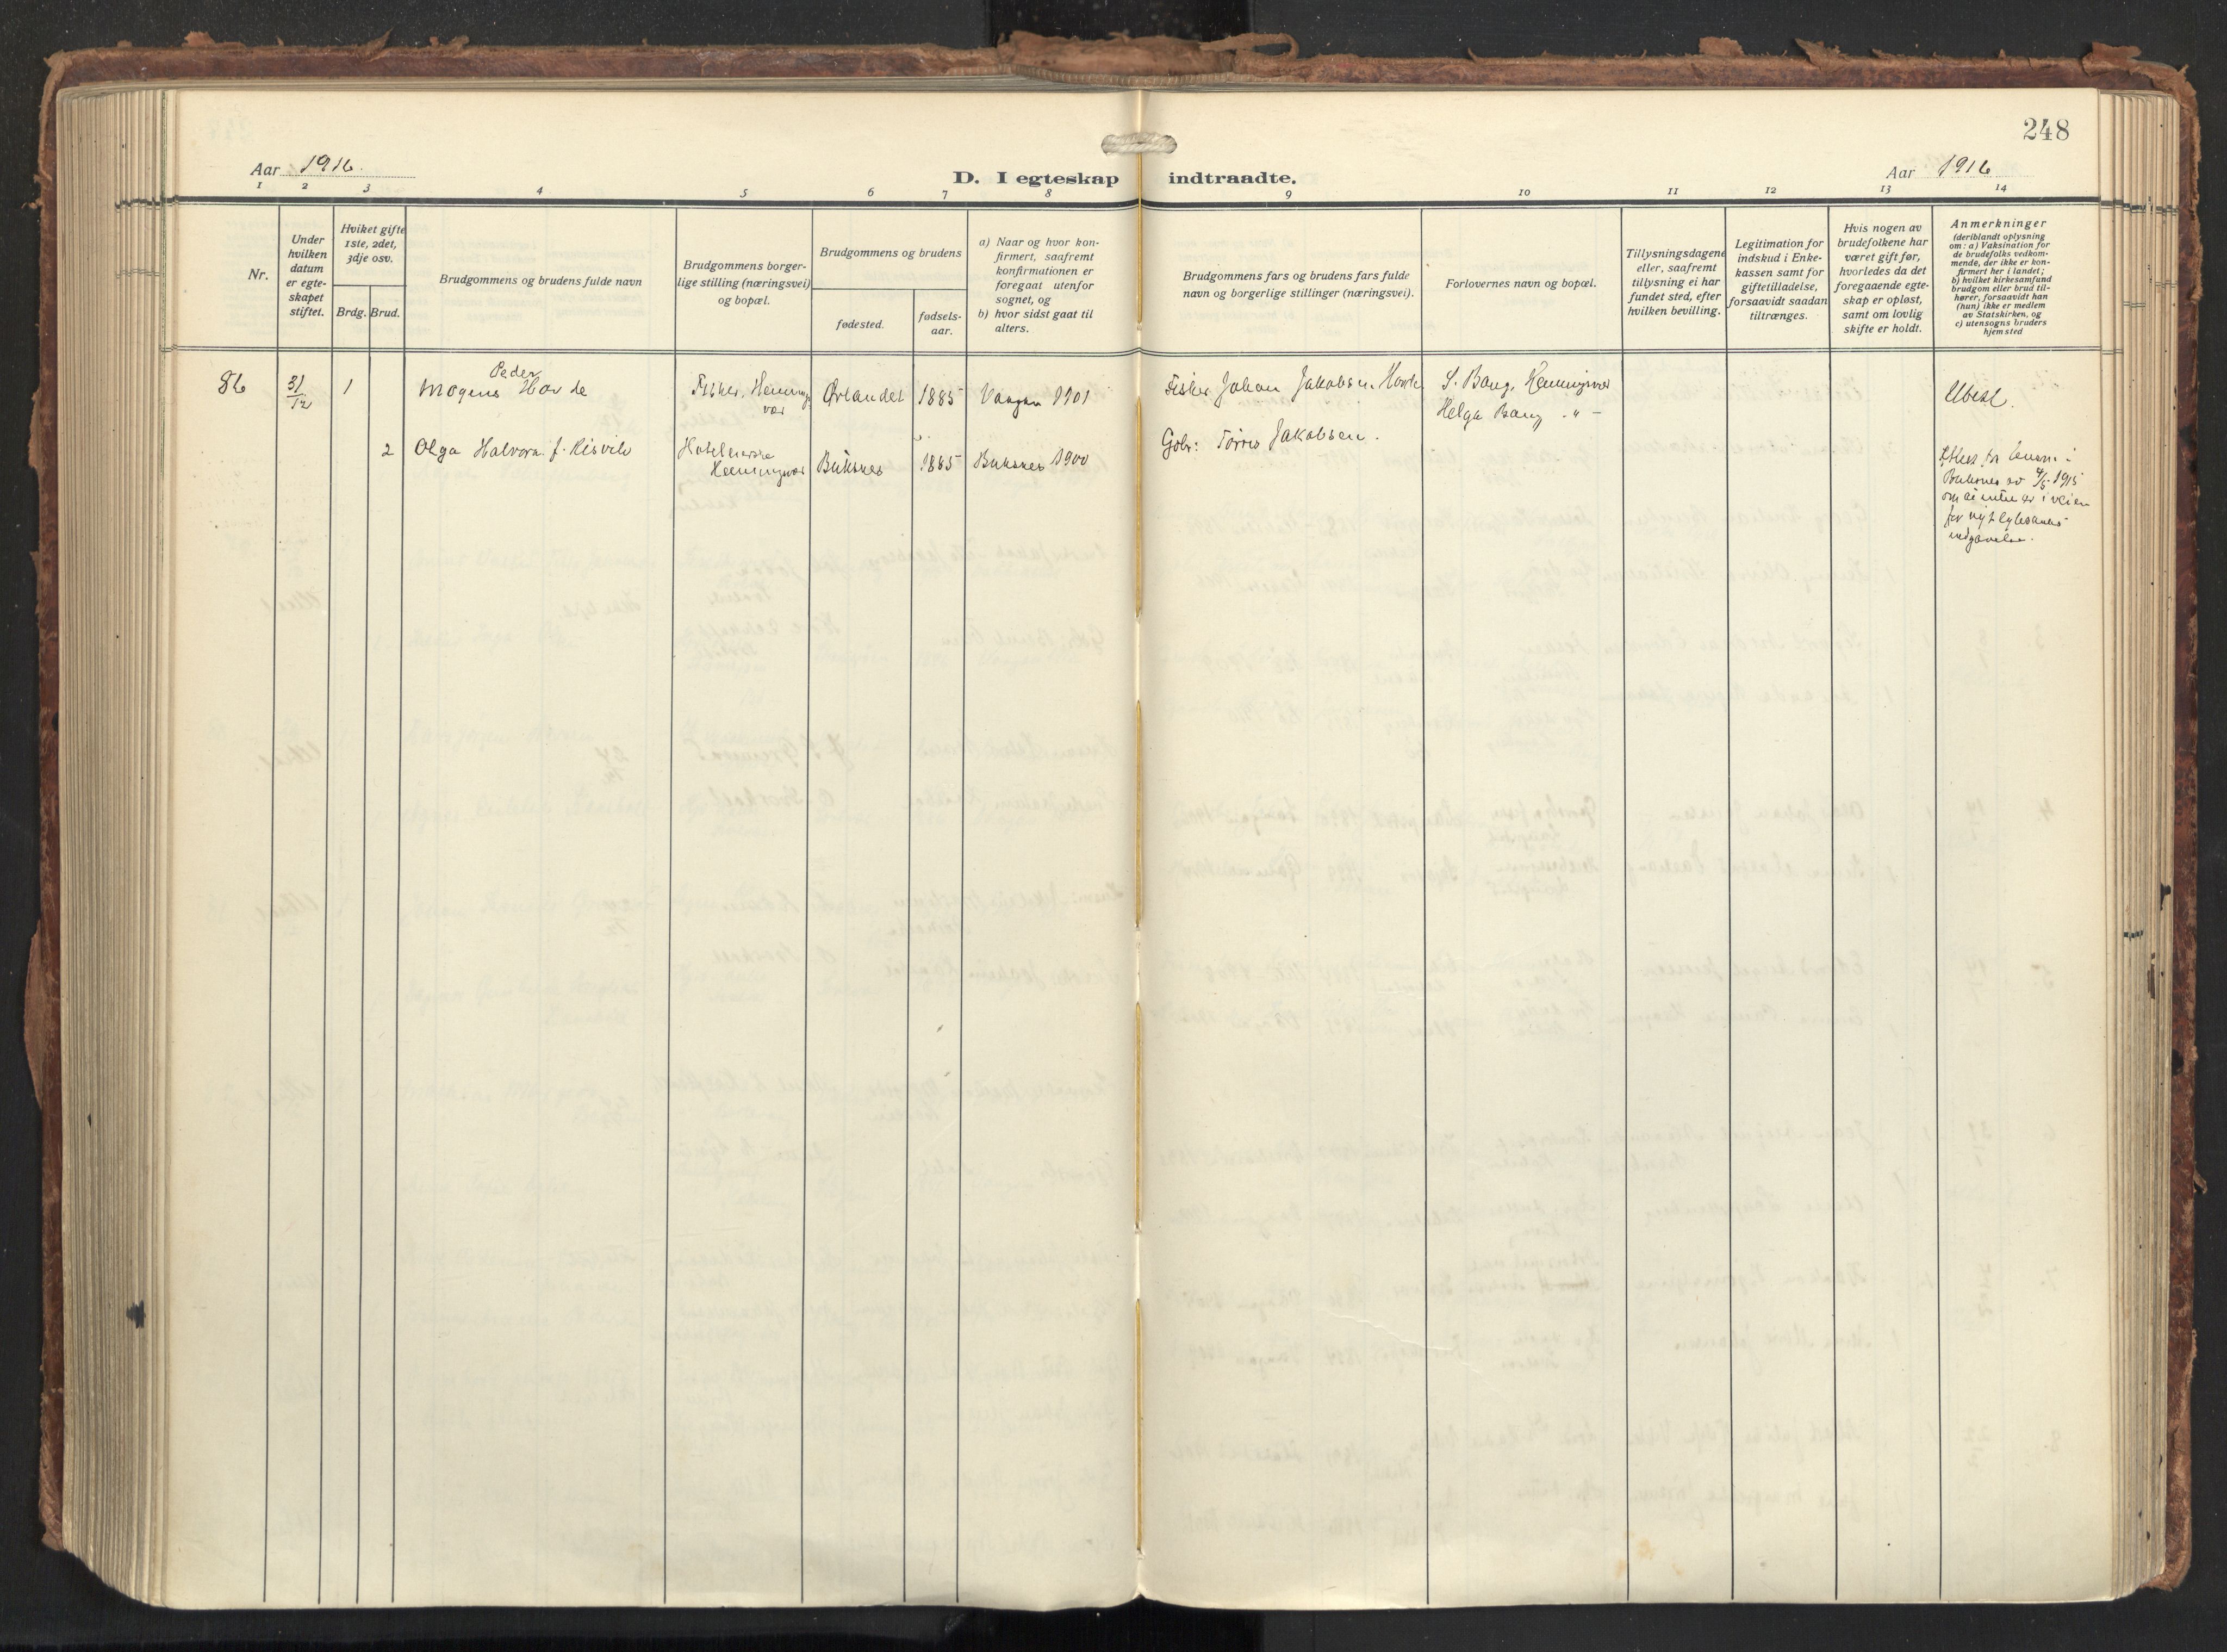 248
Aar 1916.
D. I egteskap indtraadte.
Aar 1916
1 2 3 4 5 6 7 8 9 10 11 12 13 14
Nr.
Under
hvilken
datum
er egte-
skapet
stiftet.
Hviket gifte
1ste, 2det,
3dje osv.
Brdg. Brud.
Brudgommens og brudens fulde navn
Brudgommens borger-
lige stilling (næringsvei)
og bopæl.
Brudgommens og brudens
fødested.
fødsels-
aar.
a) Naar og hvor kon-
firmert, saafremt
konfirmationen er
foregaat utenfor
sognet, og
b) hvor sidst gaat til
alters.
Brudgommens fars og brudens fars fulde
navn og borgerlige stillinger (næringsvei).
Forlovernes navn og bopæl.
Tillysningsdagene
eller, saafremt
tillysning ei har
fundet sted, efter
hvilken bevilling.
Legitimation for
indskud i Enke-
kassen samt for
giftetilladelse,
forsaavidt saadan
tiltrænges.
Hvis nogen av
brudefolkene har
været gift før,
hvorledes da det
foregaaende egte-
skap er opløst,
samt om lovlig
skifte er holdt.
Anmerkninger
(deriblandt oplysning
om: a) Vaksination for
de brudefolks vedkom-
mende, der ikke er kon-
firmert her i landet;
b) hvilket kirkesamfund
brudgom eller brud til-
hører, forsaavidt han
(hun) ikke er medlem
av Statskirken, og
c) utensogns bruders
hjemsted
86 31/12 1
Peder
Mogens Hovde
Fisker, Hennings
vær
Ørlandet 1885 Vaagan 1901
Fisker Johan Jakobsen Hovde
S. Bang, Henningsvær
Helga Bang " -
Ubesl.
2 Olga Halvors. f. Risvik
Henningsvær
Buksnes 1885 Buksnes 1900
Gbr: Tørris Jakobsen.
Buksnes av 4/5 1915
om at intet er i veien
for nyt
indgaaelse.